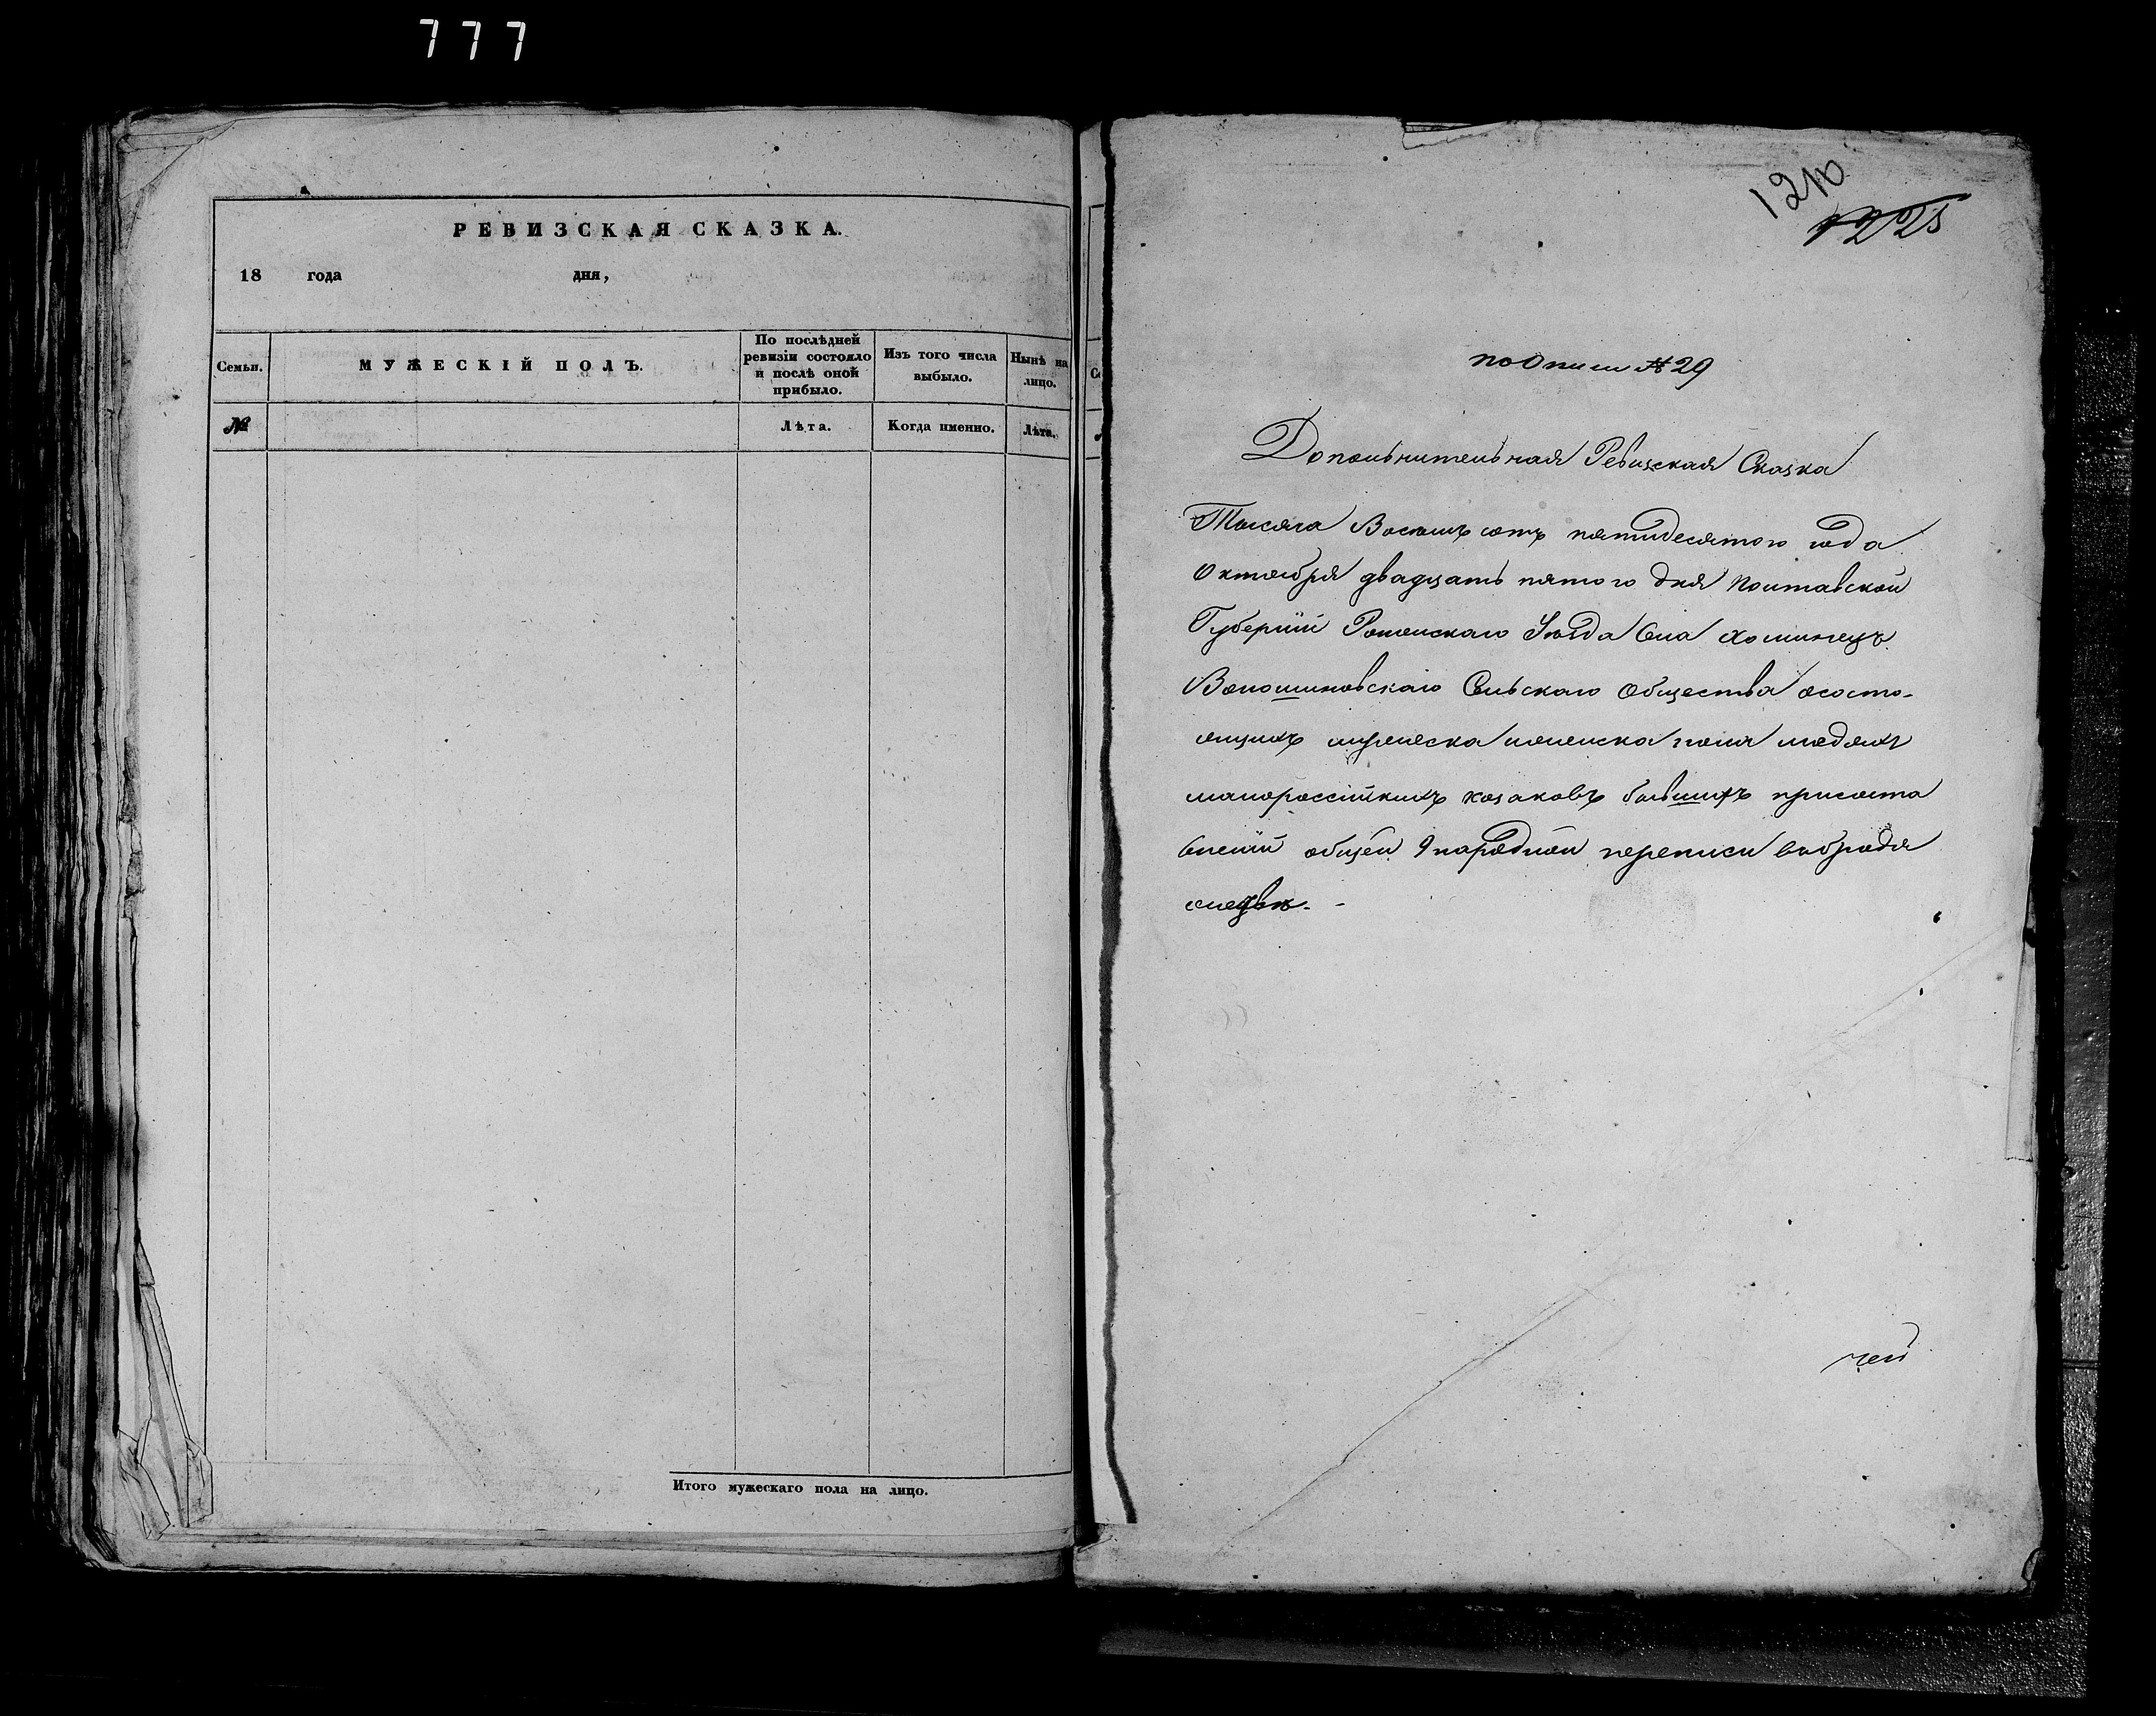 777
РЕВИЗСКАЯ СКАЗКА.
18 года дня,
Семьи.
МУЖЕСКІЙ ПОЛЪ.
По послѣдней ревизіи состояло и послѣ оной прибыло.
Изъ того числа выбыло.
Нынѣ на лицо.
№
Лѣта.
Когда именно.
Лѣта.
Итого мужескаго пола на лицо.
1210
1225
по Описи № 29
Дополнительная Ревизская Сказка
Тысяча Восемь сотъ пятидесятого года
Октября двадцать пятого дня Полтавской
Губерніи Роменскаго Уезда Села Хоминецъ
Волошиновскаго Сельскаго Общества ососто-
ящихъ мужеска иженска пола людяхъ
малороссійкихъ козаковъ бывшихъ
общей 9 народной переписи